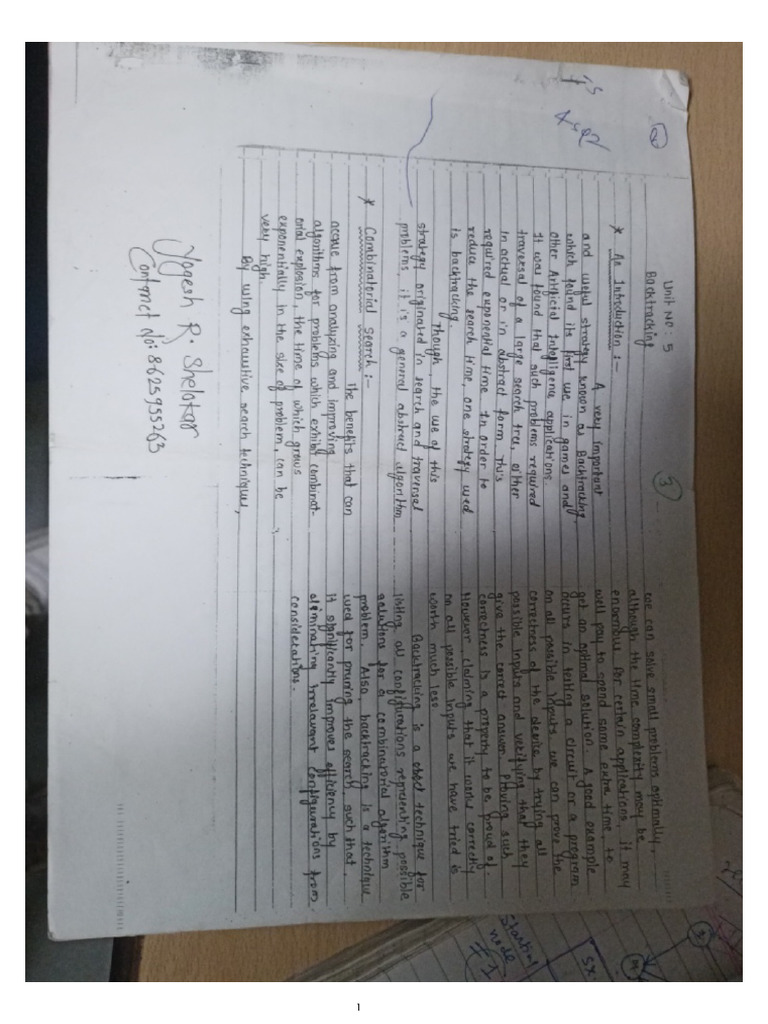 Unit No : 5
Backtracking
* An Introduction :-
A very important
and useful strategy known as Backtracking
which found its first use in games and
other Artificial Intelligence applications.
It was found that such problems required
traversal of a large search tree, either
in actual or in abstract form. This
required exponential time. In order to
reduce the search time, one strategy used
is backtracking.
Though, the use of this
strategy originated in search and traversal
problems, it is a general abstract algorithm
* Combinatorial search :-
the benefits that can
accrue from analyzing and improving
algorithms for problems which exhibit combinat-
orial explosion, the time of which grows
exponentially in the size of problem, can be
very high.
By using exhaustive search techniques,
3
we can solve small problems optimally,
although the time complexity may be
enormous. For certain applications, it may
well pay to spend some extra time, to
get an optimal solution. A good example
occurs in testing a circuit or a program
on all possible inputs we can prove the
correctness of the device by trying all
possible inputs and verifying that they
give the correct answer. Proving such
correctness is a property to be proud of.
However, claiming that it works correctly
on all possible inputs we have tried is
worth much less.
Backtracking is a object technique for
listing all configurations representing possible
solutions for a combinatorial algorithm
problem. Also backtracking is a technique
used for pruning the search, such that,
it significantly improves efficiency by
eliminating irrelavant configurations from
considerations.
Yogesh R. Shelokar
Contact No: 8625955263
Starting
node
1